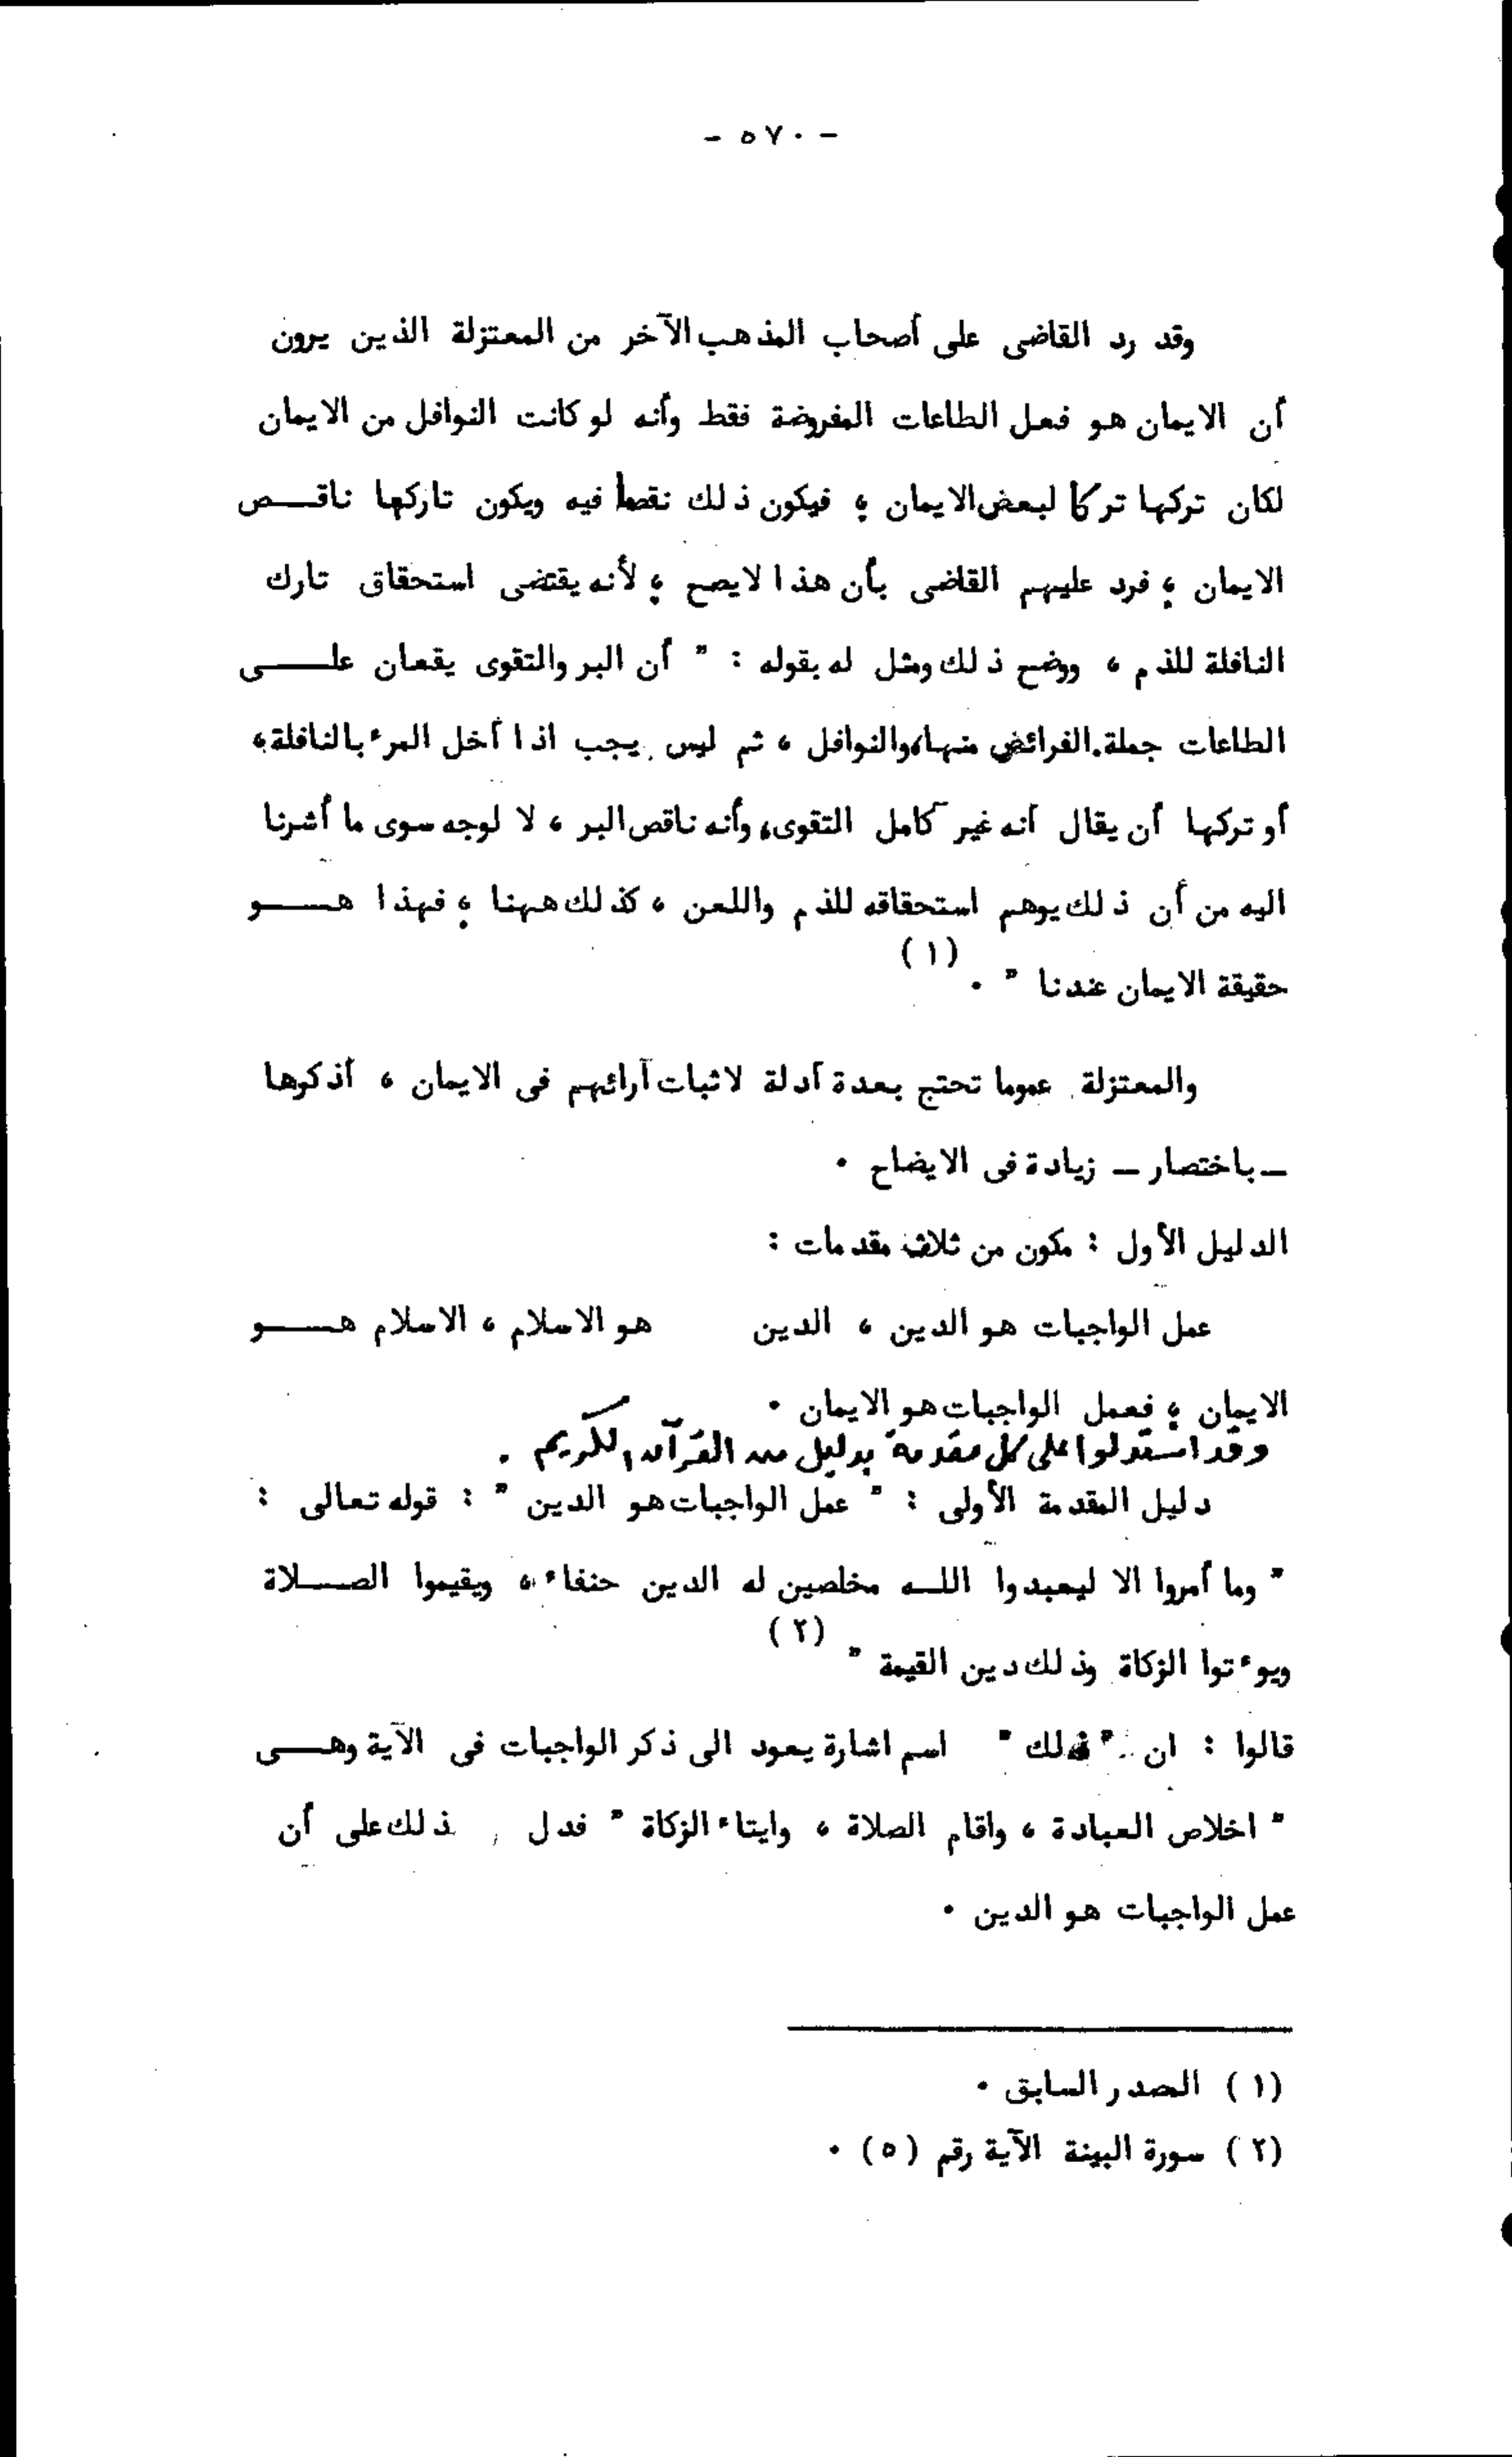 - ٥٧٠ -
وقد رد القاضى على أصحاب المذهب الآخر من المعتزلة الذين يرون
أن الايمان هو فعل الطاعات المفروضة فقط وأنه لو كانت النوافل من الايمان
لكان تركها تركا لبعض الايمان ؛ فيكون ذلك نقصا فيه ويكون تاركها ناقـــص
الايمان ؛ فرد عليهم القاضى بأن هذا لايصح ؛ لأنه يقتضى استحقاق تارك
النافلة للذم ، ووضح ذلك ومثل له بقوله : " أن البر والتقوى يقعان علـــــى
الطاعات جملة. الفرائض منها، والنوافل ، ثم ليس يجب اذا أخل المرء بالنافلة،
أو تركها أن يقال أنه غير كامل التقوى، وأنه ناقص البر ، لا لوجه سوى ما أشرنا
اليه من أن ذلك يوهم استحقاقه للذم واللعن ، كذلك ههنا ؛ فهذا هـــــو
حقيقة الايمان عندنا " . (١)
والمعتزلة عموما تحتج بعدة أدلة لاثبات آرائهم فى الايمان ، أذكرها
ــ باختصار ــ زيادة فى الايضاح .
الدليل الأول : مكون من ثلاث مقدمات :
عمل الواجبات هو الدين ، الدين هو الاسلام ، الاسلام هـــــو
الايمان ؛ فعمل الواجبات هو الايمان .
وقد استدلوا على كل مقدمة بدليل من القرآن الكريم .
دليل المقدمة الأولى : " عمل الواجبات هو الدين " : قوله تعالى :
" وما أمروا الا ليعبدوا اللــه مخلصين له الدين حنفاء ، ويقيموا الصـــلاة
ويوءتوا الزكاة وذلك دين القيمة " (٢)
قالوا : ان " ذلك " اسم اشارة يعود الى ذكر الواجبات فى الآية وهـــى
" اخلاص العبادة ، واقام الصلاة ، وايتاء الزكاة " فدل ذلك على أن
عمل الواجبات هو الدين .
(١) المصدر السابق .
(٢) سورة البينة الآية رقم (٥) .